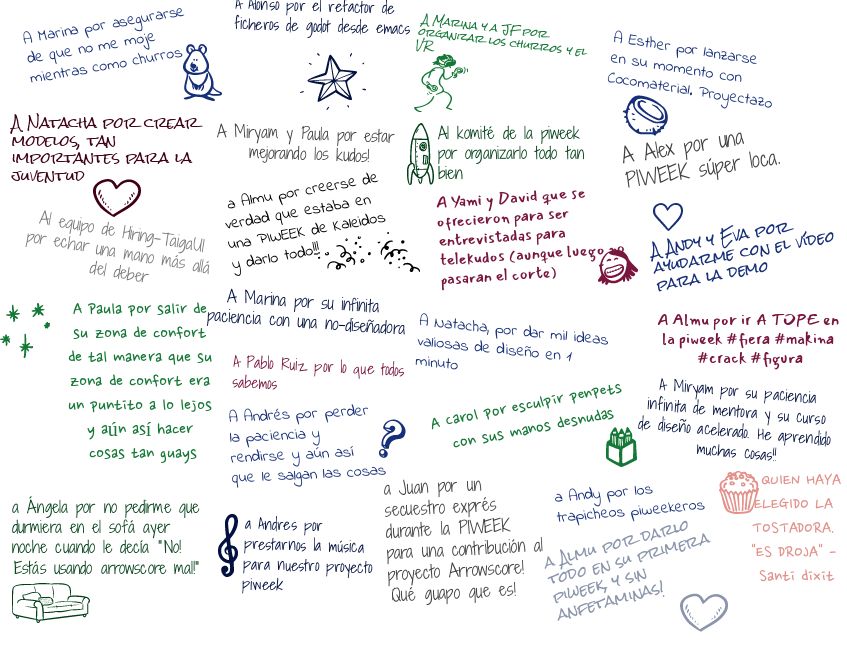 A Marina por asegurarse
de que no me moje
mientras como churros
A Alonso por el refactor de
ficheros de godot desde emacs
A Marina y a JF por
organizar los churros y el
VR
A Esther por lanzarse
en su momento con
Cocomaterial. Proyectazo
A Natacha por crear
modelos, tan
importantes para la
juventud
A Miryam y Paula por estar
mejorando los kudos!
Al komité de la piweek
por organizarlo todo tan
bien
A Alex por una
PIWEEK súper loca.
Al equipo de Hiring-TaigaUI
por echar una mano más allá
del deber
a Almu por creerse de
verdad que estaba en
una PIWEEK de Kaleidos
y darlo todo!!!
A Yami y David que se
ofrecieron para ser
entrevistadas para
telekudos (aunque luego no
pasaran el corte)
A Andy y Eva por
ayudarme con el vídeo
para la demo
A Paula por salir de
su zona de confort
de tal manera que su
zona de confort era
un puntito a lo lejos
y aún así hacer
cosas tan guays
A Marina por su infinita
paciencia con una no-diseñadora
A Natacha, por dar mil ideas
valiosas de diseño en 1
minuto
A Almu por ir A TOPE en
la piweek #fiera #makina
#crack #figura
A Pablo Ruiz por lo que todos
sabemos
A Andrés por perder
la paciencia y
rendirse y aún así
que le salgan las cosas
A carol por esculpir penpets
con sus manos desnudas
A Miryam por su paciencia
infinita de mentora y su curso
de diseño acelerado. He aprendido
muchas cosas!!
a Ángela por no pedirme que
durmiera en el sofá ayer
noche cuando le decía "No!
Estás usando arrowscore mal!"
a Andres por
prestarnos la música
para nuestro proyecto
piweek
a Juan por un
secuestro exprés
durante la PIWEEK
para una contribución al
proyecto Arrowscore!
Qué guapo que es!
a Andy por los
trapicheos piweekeros
A Almu por darlo
todo en su primera
piweek, y sin
anfetaminas!
QUIEN HAYA
ELEGIDO LA
TOSTADORA.
"ES DROJA" -
Santi dixit